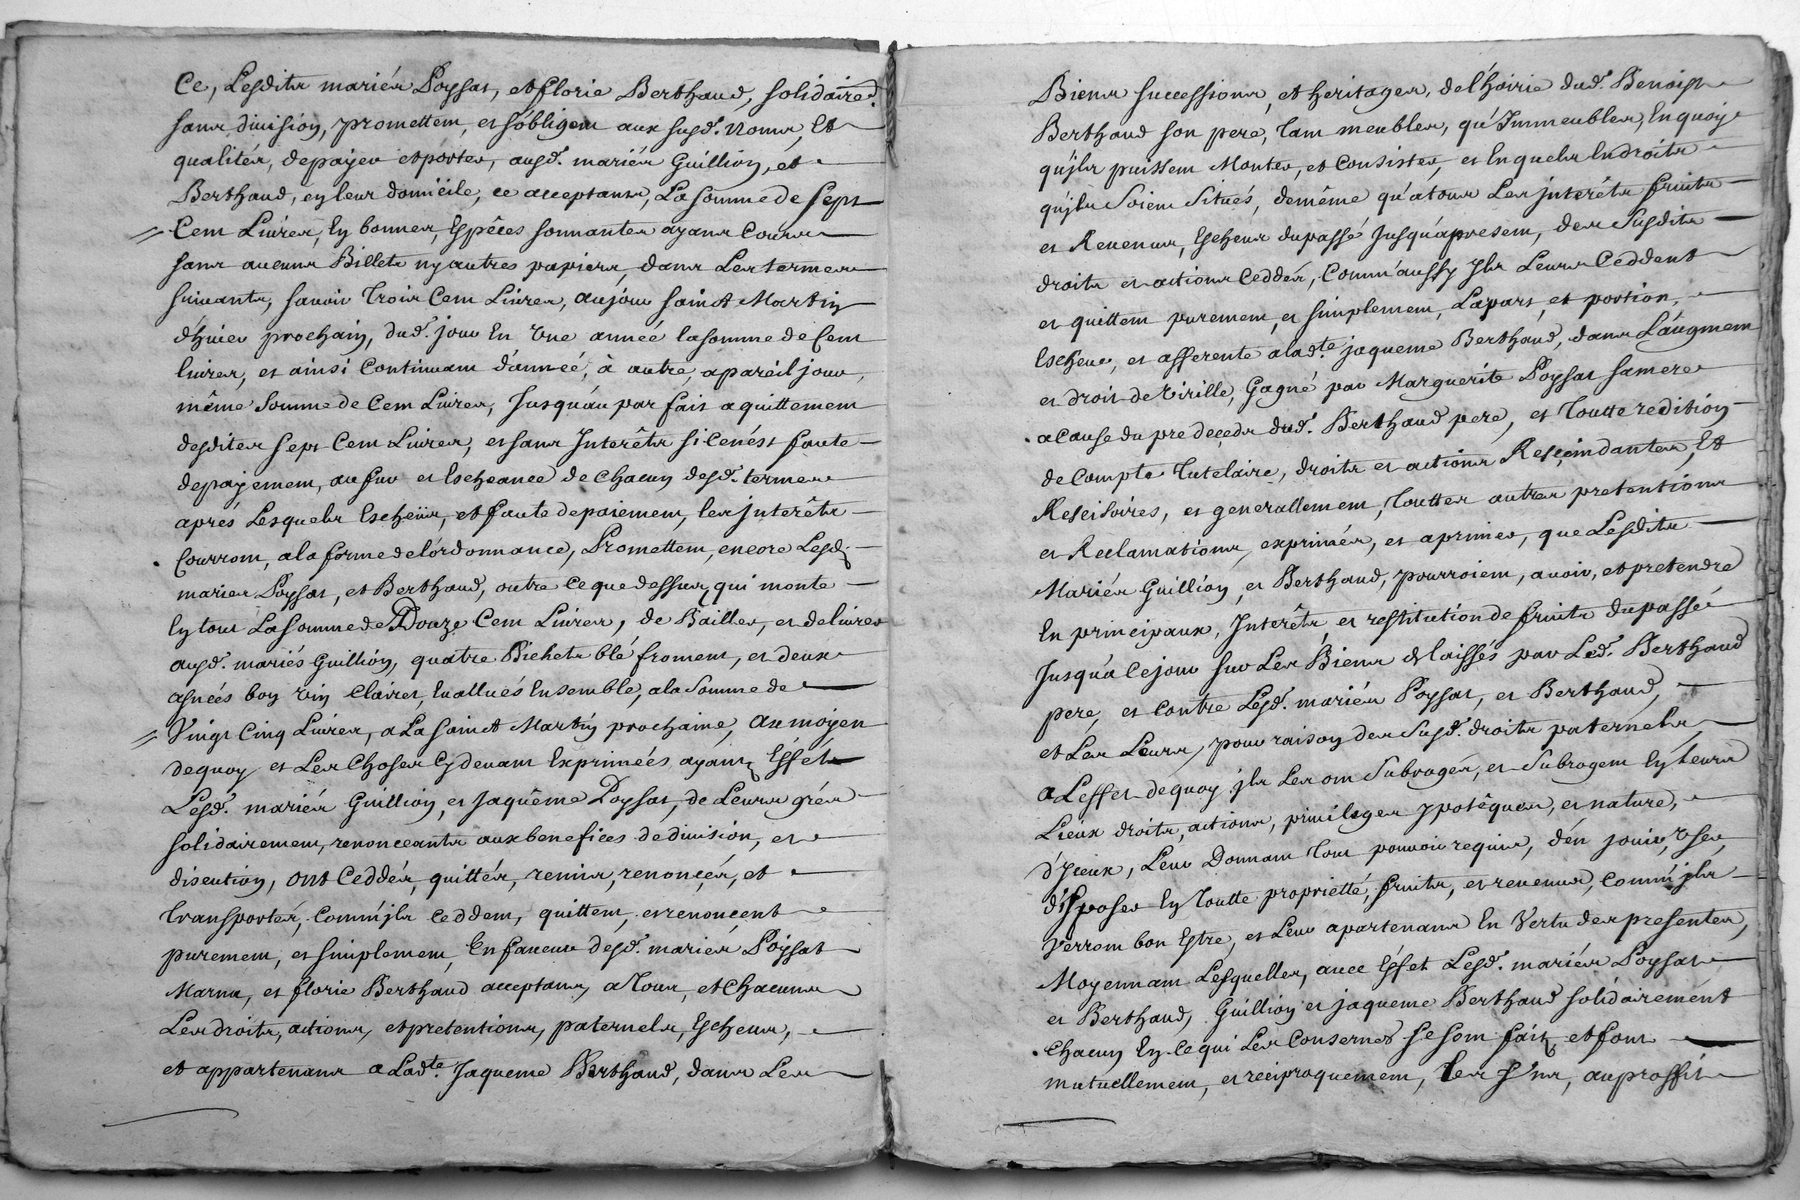 Ce, Lesdits mariés Poysat, et florie Berthaud, solidaired.
sans division, promettent, et s'obligent aux susd. Noms, Et
qualités, de payer et porter, ausd. mariés Guillion, et
Berthaud, en leur domicile, ce acceptants, La somme de Sept
Cent Livres, En bonnes, Espêces sonnantes ayans Cours
sans aucuns Billets ny autres papiers, dans Les termes
suivants, savoir Trois Cent Livres, au jour saint Martin
d'hiver prochain, dud. jour En Une année la somme de Cent
livres, et ainsi Continuant d'année, à autre, a pareil jour,
même Somme de Cent Livres, Jusqu'au parfait aquittement
desdites sept Cent Livres, et sans Interêts si ce n'ést faute
de payement, au fur et Escheance de Chacun desd. termes
aprés Lesquels Escheüs, et faute de paiement, les jnterêts
Courront, a la forme de l'ordonnance, Promettent, encore Lesd.
maries Poysat, et Berthaud, outre ce que dessus, qui monte
En tout La somme de Douze Cent Livres, de Bailler, et delivrer
ausd. mariés Guillion, quatre Bichets blé froment, et deux
asnées bon vin Clairet, Evallués Ensemble, a la Somme de
Vingt Cinq Livres, a La Sainct Martin prochaine, au moyen
de quoy et Les Choses Cy devant Exprimées ayant Effet
Lesd. mariés Guillion, et Jaquême Poysat, de Leurs grés
solidairement, renonceants aux benefices de division, et
discution, ont Ceddés, quittés, remis, renoncés, et
transportés, comm'jls ceddent, quittent, et renoncent
purement, et simplement, En faveur desd. mariés Poysat
Marnu, et florie Berthaud acceptans, a Tous, et Chacuns
Les droits, actions, et pretentions, paternels, Escheus,
et appartenans a Ladte. Jaqueme Berthaud, dans Les
Biens successions, et heritages, de l'hoirie dud. Benoist
Berthaud son pere, Tant meubles, qu'Immeubles, En quoy
qu'jls puissent Monter, et Consister, et En quels Endroits
qu'jls Soient Situés, de même qu'a tous Les jnterêts fruits
et Revenus, Escheus du passé Jusqu'a present, des Susdits
droits et actions Ceddés, Comm'aussy Jls Leurs Ceddent
et quittent purement, et simplement, La part, et portion,
Escheue, et afferente a ladte. jaqueme Berthaud, dans L'augment
et droit de Virille, Gagné par Marguerite Poysat sa mere
a Cause du predeceds dud. Berthaud pere, et Toutte redition
de Compte Tutelaire, droits et actions Rescindantes, Et
Rescisoires, et generallement, Touttes autres pretentions
et Reclamations, exprimés, et aprimer, que Lesdits
Mariés Guillion, et Berthaud, pourroient, avoir, et pretendre
En principaux, Interêts et restitution de fruits du passé
Jusqu'a Ce jour sur Les Biens delaissés par Led. Berthaud
pere, et Contre Lesd. mariés Poysat, et Berthaud,
et Les Leurs, pour raison des Susd. droits paternels,
a L'effet de quoy jls Les ont Subrogés, et Subrogent En Leurs
Lieux droits, actions, privileges ypotêques, et nature,
d'Jceux, Leur Donnant Tout pouvoir requis, d'en jouir, User,
disposer En Toutte proprietté, fruits, et revenus, comm'jls
Verront bon Estre, et Leur apartenans En Vertu des presentes,
Moyennant Lesquelles, avec Effet Lesd. mariés Poysat
et Berthaud, Guillion et jaqueme Berthaud solidairement
Chacun En ce qui Les Consernes se sont fait et font
mutuellement, et reciproquement, Les Uns, au proffit